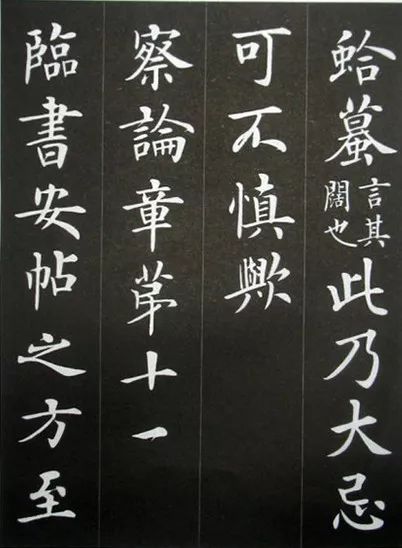 蛤蟇言其闊也此乃大忌
可不慎歟
察論章苐十一
臨書安帖之方至